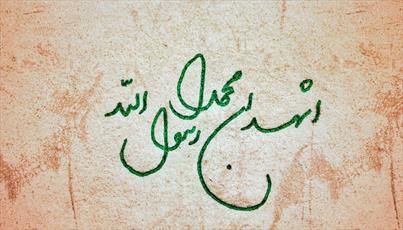 اشهد ان محمدا رسول الله